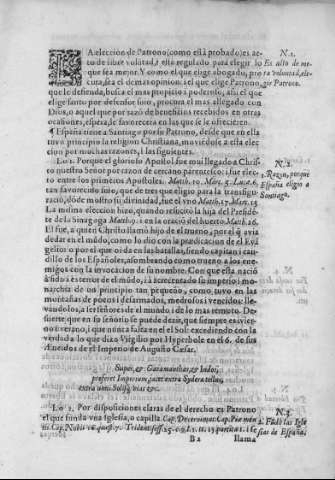 LA eleccion de Patrono (como està probado) es ac-
to de libre volũtad, y està regulado para elegir lo
que sea mejor. Y como el que elige abogado, pro
cura, sea el de mas opinion: i el que elige Patrono
que le defienda, busca el mas propicio a poderlo; asi el que
elige santo por defensor suio, procura el mas allegado con
Dios, o aquel que por razõ de beneficios recebidos en otras
ocasiones, espera le favorecera en las que se le ofrecierẽ.
¶ España tiene a Santiago por su Patrono, desde que en ella
tuvo principio la religion Christiana, moviedose a esta elec
cion por muchas razones, i las siguientes.
Lo 1. Porque el glorioso Apostol fue mui llegado a Chris-
to nuestro Señor por razon de cercano parentesco: fue elec
to entre los primeros Apostoles. Math. 10. Marc. 3. Luc. 6.
tan favorecido suio, que de tres que eligio para la transfigu-
raciõ, dõde mostro su divinidad, fue el vno Math. 17. Marc. 15
La misma eleccion hizo, quando resucito la hija del Presidẽ-
te de la Sinagoga Math. 9. i en la oraciõ del huerto Math. 26.
El fue, a quien Christo llamò hijo de el trueno, por el q̃ avia
de dar en el mũdo, como lo dio con la predicacion de el Evã
gelico: o por el que oi da en las batallas, siendo capitan i cau
dillo de los Españoles, asombando como trueno a los ene-
migos con la invocacion de su nombre. Con que esta nació
a sido i es terror de el mũdo, i à acrecentado su imperio i mo-
marchia de vn principio tan pequeño, como tuvo en las
montañas de pocos i desarmados, medrosos i vencidos: lle-
vandolos, a ser señores de el mundo, i de lo mas remoto. De
suerte, que en su señorio se puede dezir, que siempre es invier-
no i verano, i que nunca falta en el el Sol: excediendo con la
verdad a lo que dixo Virgilio por Hyperbole en el 6. de sus
Æneidos de el Imperio de Augusto Cæsar.
Super, & Garamantas, & Indos,
proferet Imperium, jacet extra sydera tellus,
extra anni Solisq; vias &c.
Lo 2. Por disposiciones claras de el derecho es Patrono
el que funda vna Iglesia, o capilla
Ba
llama
N. 1.
Es acto de me
ra volũtad, ele
gir Patrono.
N. 2.
1. Razõ, porque
España eligio a
Santiago.
N. 3.
2. Fũdò las Igle
sias de España.